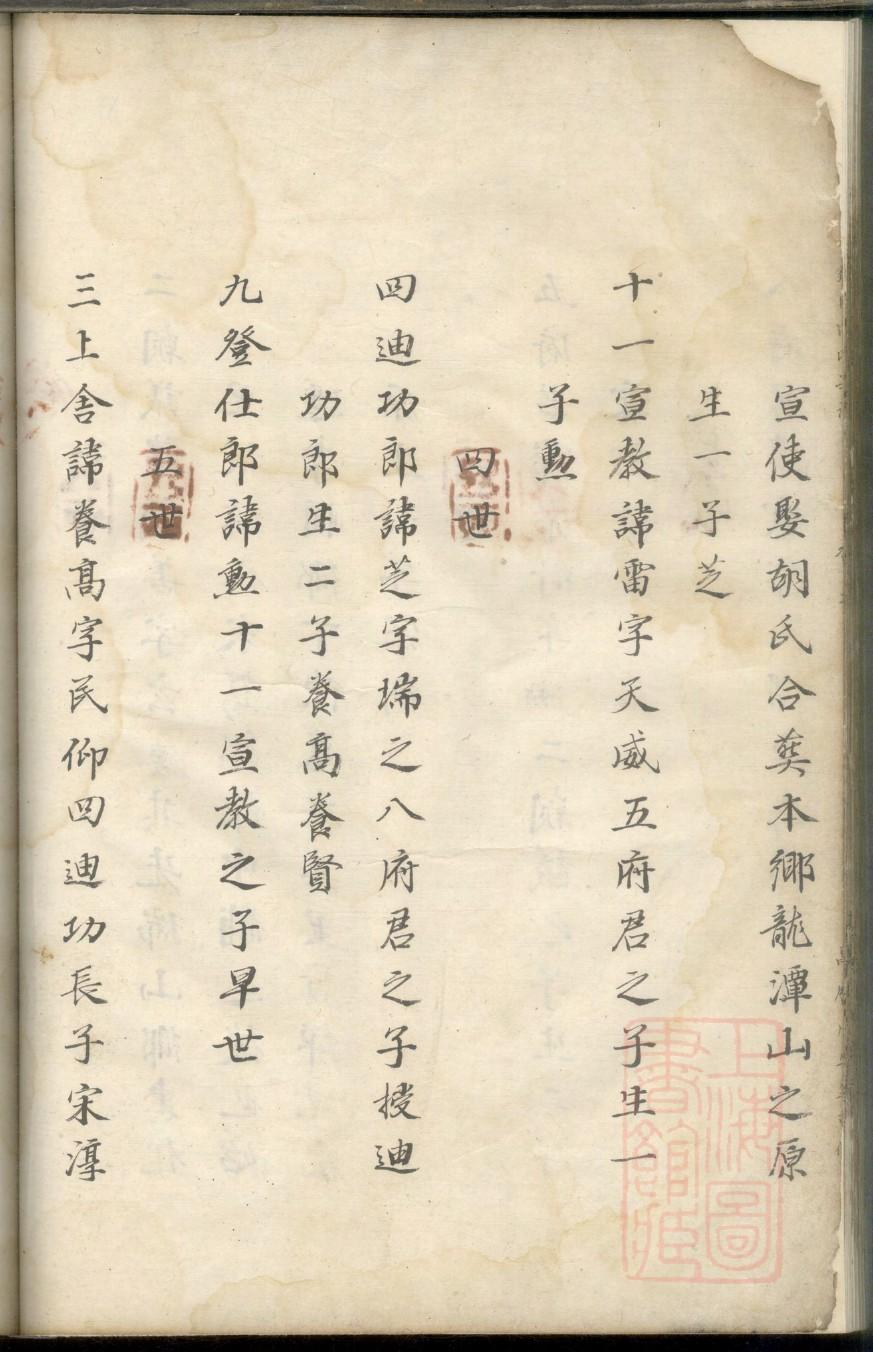 宣使娶胡氏合葬本鄉龍潭山之原
生一子芝
十一宣教諱雷字天威五府君之子生一
子勲
四世
四迪功郎諱芝字瑞之八府君之子授迪
功郎生二子養髙養賢
九登仕郎諱勲十一宣教之子早世
五世
三上舎諱養髙字民仰四迪功長子宋淳
上海圖書館藏